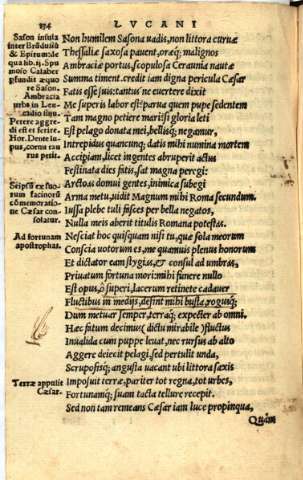 254 LVCANI
Sason insula
inter Brūdusiū
& Epirum de
qua lib. ij. Spu
moso Calaber
pfundit æquo
re Sason.
Ambracia
urbs in Leu-
cadio sinu.
Petere aggre-
di est et ferire.
Hor. Dente lu-
pus, cornu tau
rus petit.
Scipsū ex suo
rum facinorū
cōmemoratio
ne Cæsar con
solatur.
Ad fortunam
apostrophas.
Terræ apputis
Cæsar.
Non humilem Sasona uadis, non littora curuæ
Thessaliæ saxosa pauent, oraq; malignos
Ambraciæ portus, scopulosa Ceraunia nautæ
Summa timent. credit iam digna pericula Cæsar
Fatis esse suis: tantus ne euertere dixit
Me superis labor est? parua quem pupe sedentem
Tam magno petiere mari? si gloria leti
Est pelago donata mei, bellisq; negamur,
Intrepidus quancunq; datis mihi numina mortem
Accipiam, licet ingentes abruperit actus
Festinata dies fatis, sat magna peregi:
Arctoas domui gentes, inimica subegi
Arma metu, uidit Magnum mihi Roma secundum.
Iussa plebe tuli fasces per bella negatos,
Nulla meis aberit titulis Romana potestas.
Nesciat hoc quisquam nisi tu, quæ sola meorum
Conscia uotorum es, me quamuis plenus honorum
Et dictator eam stygias, & consul ad umbras,
Priuatum fortuna mori: mihi funere nullo
Est opus, ô superi, lacerum retinete cadauer
Fluctibus in medijs, desint mihi busta, rogusq;
Dum metuar semper, terraq; expecter ab omni.
Hæc fatum decimus (dictu mirabile) fluctus
Inualida cum puppe leuat, nec rursus ab alto
Aggere deiecit pelagi, sed pertulit unda,
Scruposisq; angusta uacant ubi littora saxis
Imposuit terræ, pariter tot regna, tot urbes,
Fortunamq; suam tacta tellure recepit.
Sed non tam remeans Cæsar iam luce propinqua,
Quàm